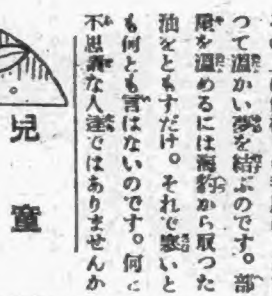 つて溫かい夢を結ぶのです。部
屋を溫めるには海豹から取つた
油をともすだけ。それで寒いと
も何とも言はないのです。何と
不思議な人達ではありませんか
兒童